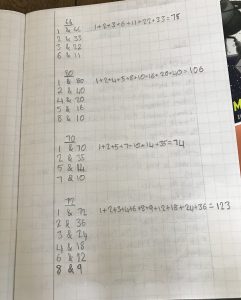 66
1 & 66 1+2+3+6+11+22+33=78
2 & 33
3 & 22
6 & 11
80
1 & 80 1+2+4+5+8+10+16+20+40=106
2 & 40
4 & 20
5 & 16
8 & 10
70
1 & 70 1+2+5+7+10+14+35=74
2 & 35
5 & 14
7 & 10
72
1 & 72 1+2+3+4+6+8+9+12+18+24+36=123
2 & 36
3 & 24
4 & 18
6 & 12
8 & 9